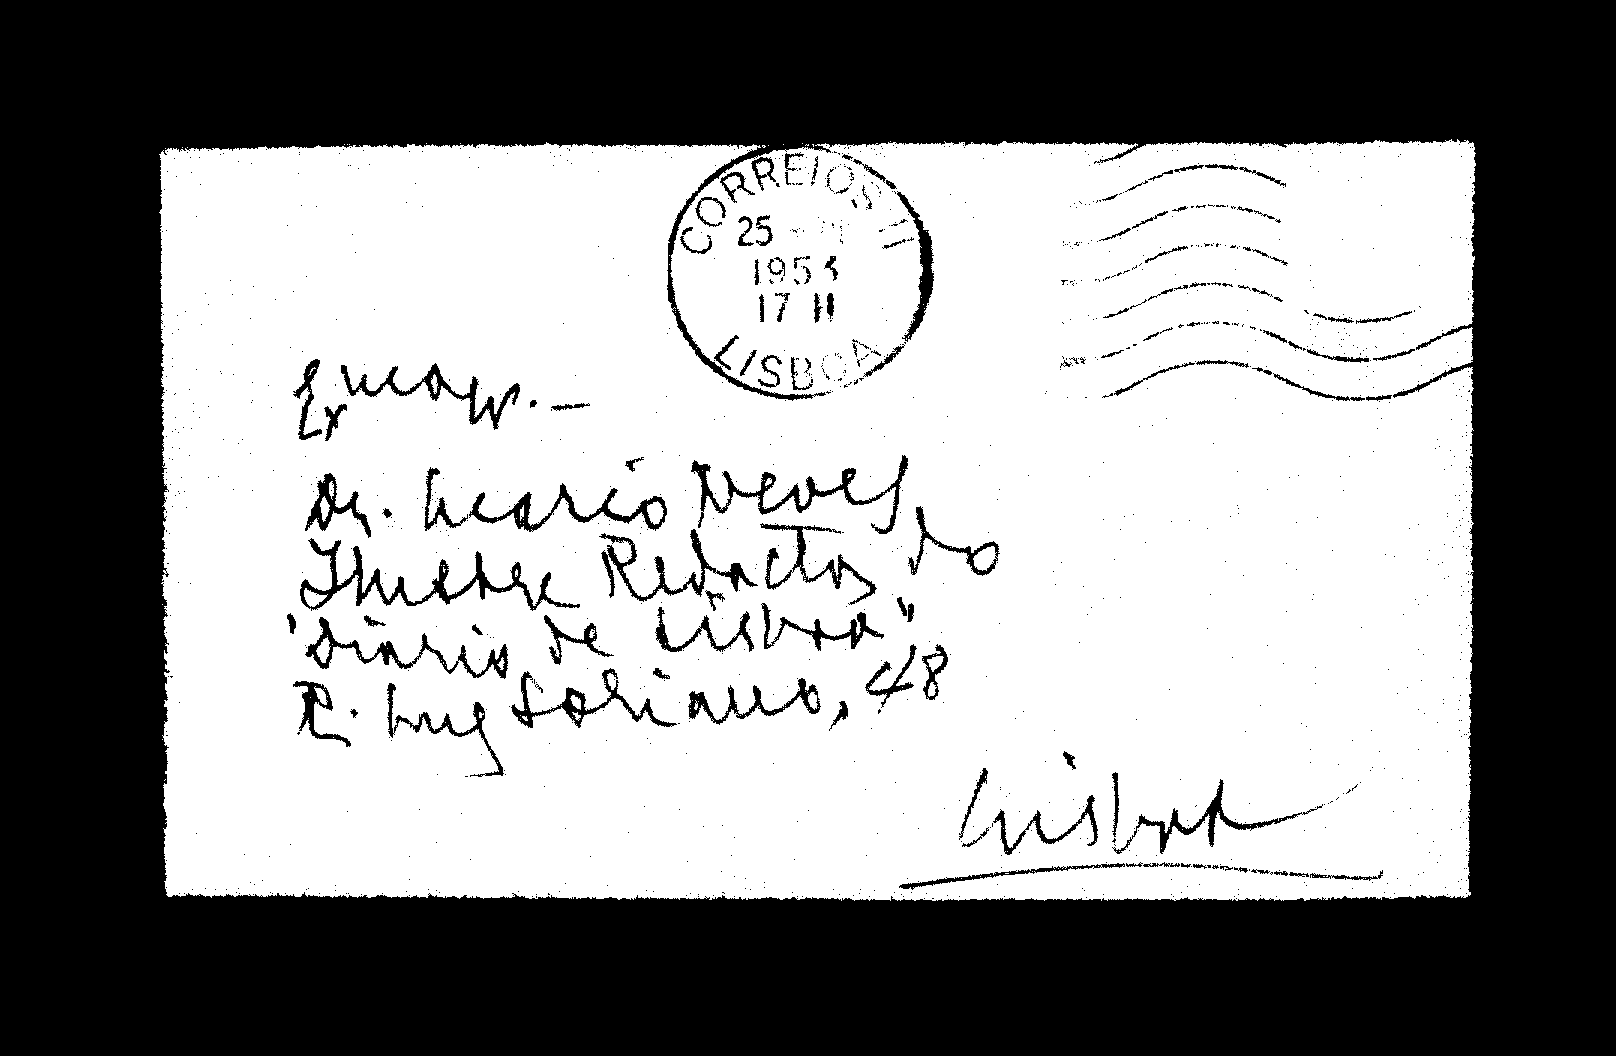 CORREIOS II
25
1953
17 H
LISBOA
Dr. Mario Neves
Ilustre Redactor do
"Diário de Lisboa"
R. Luz Soriano, 48
Lisboa